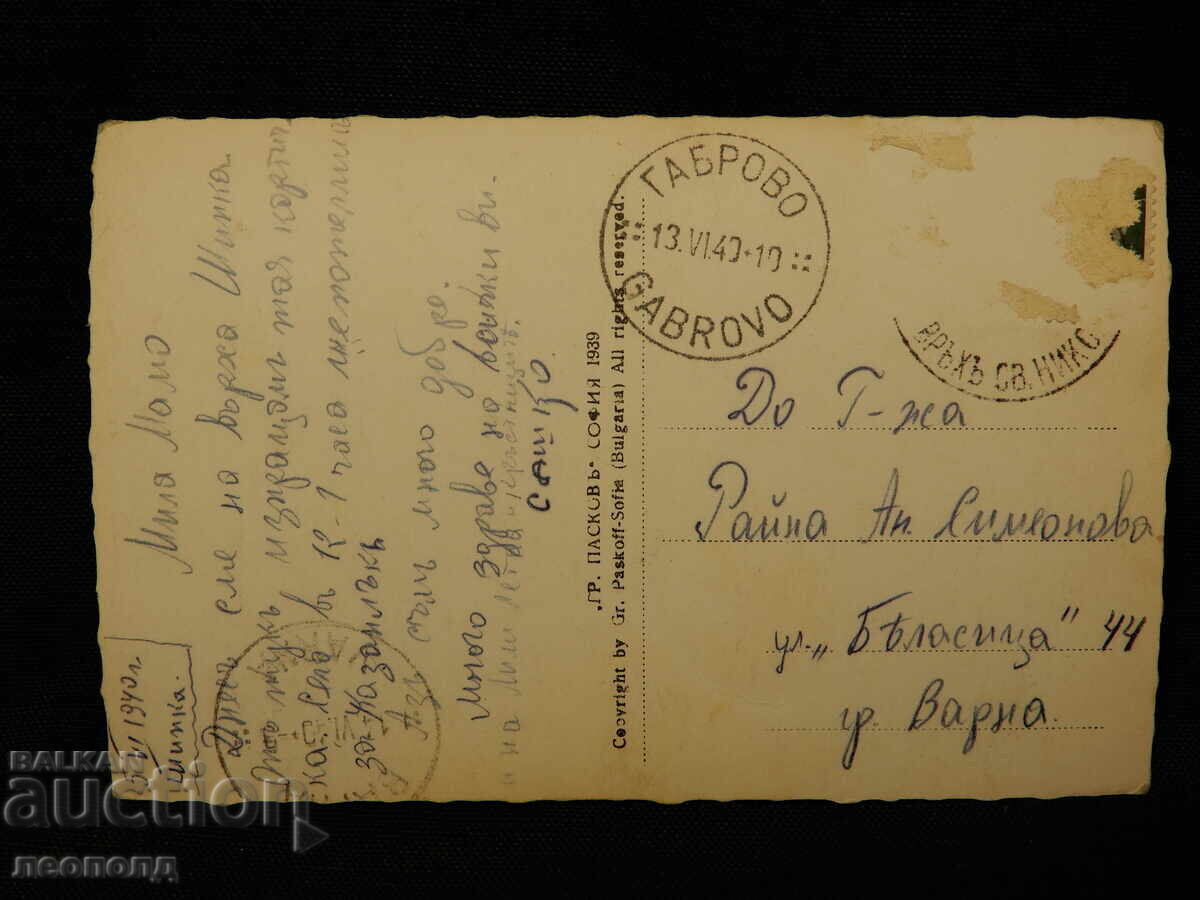 Мила Мамо
Днесъ сме на върха Шипка.
изпращамъ тая картич
ка. Сега въ 12-1 часа ще потеглим
за Казанлъкъ
Азъ съмъ много добре.
Много здраве на всички ви.
и на
1940 г.
Шипка.
„ГР. ПАСКОВЪ" СОФИЯ 1939
Copyright by Gr. Paskoff-Sofia (Bulgaria) All rights reserved.
ГАБРОВО
13.VI.40-10
GABROVO
ВРЪХЪ СВ. НИКО
До Г-жа
Райна Ан. Симеонова
ул. „Бѣласица" 44
гр. Варна.
BALKAN
auction
леополд